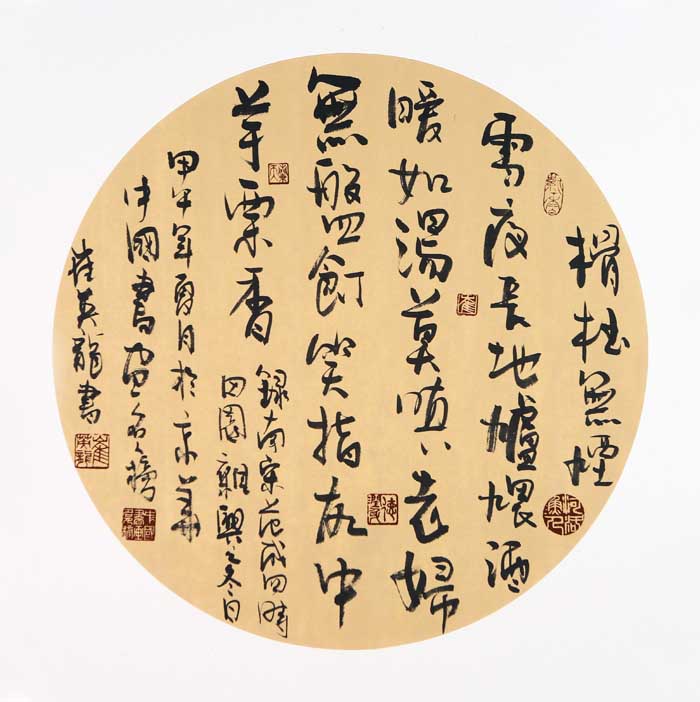 榾柮無煙
雪夜長地爐煨酒
暖如湯莫嗔老婦
無盤飣笑指灰中
芋栗香
錄南宋范成四時
田園雜興之冬日
甲午年酉月於京華
中國書画名
崔英龍書
崔
崔英龍